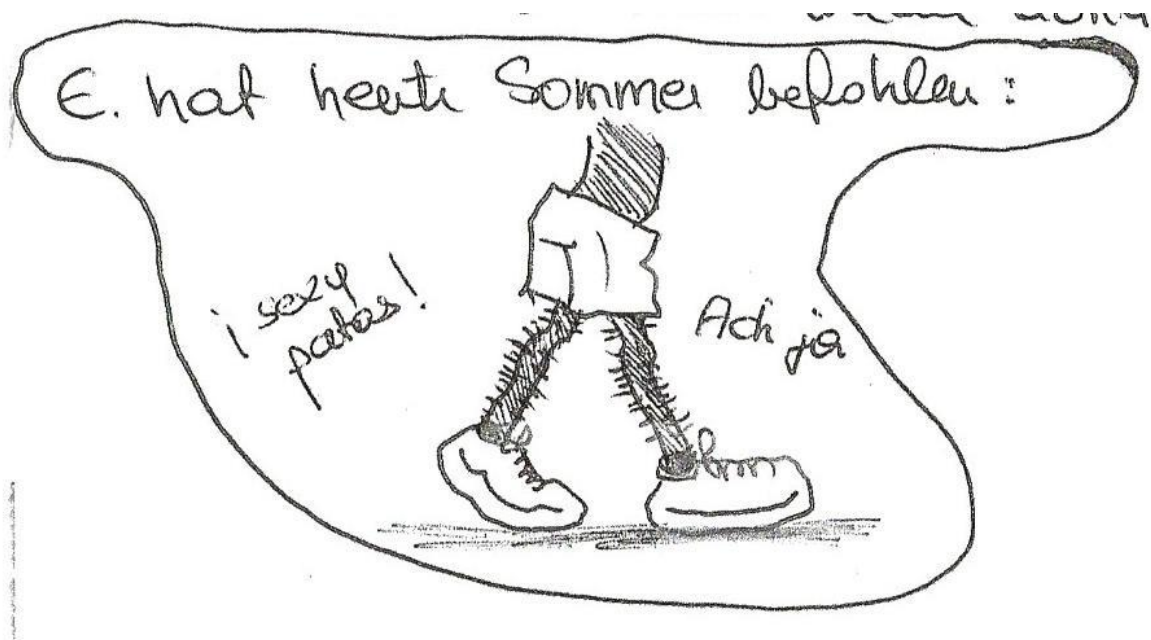 E. hat heute Sommer befohlen:
¡ sexy
patas!
Ach ja